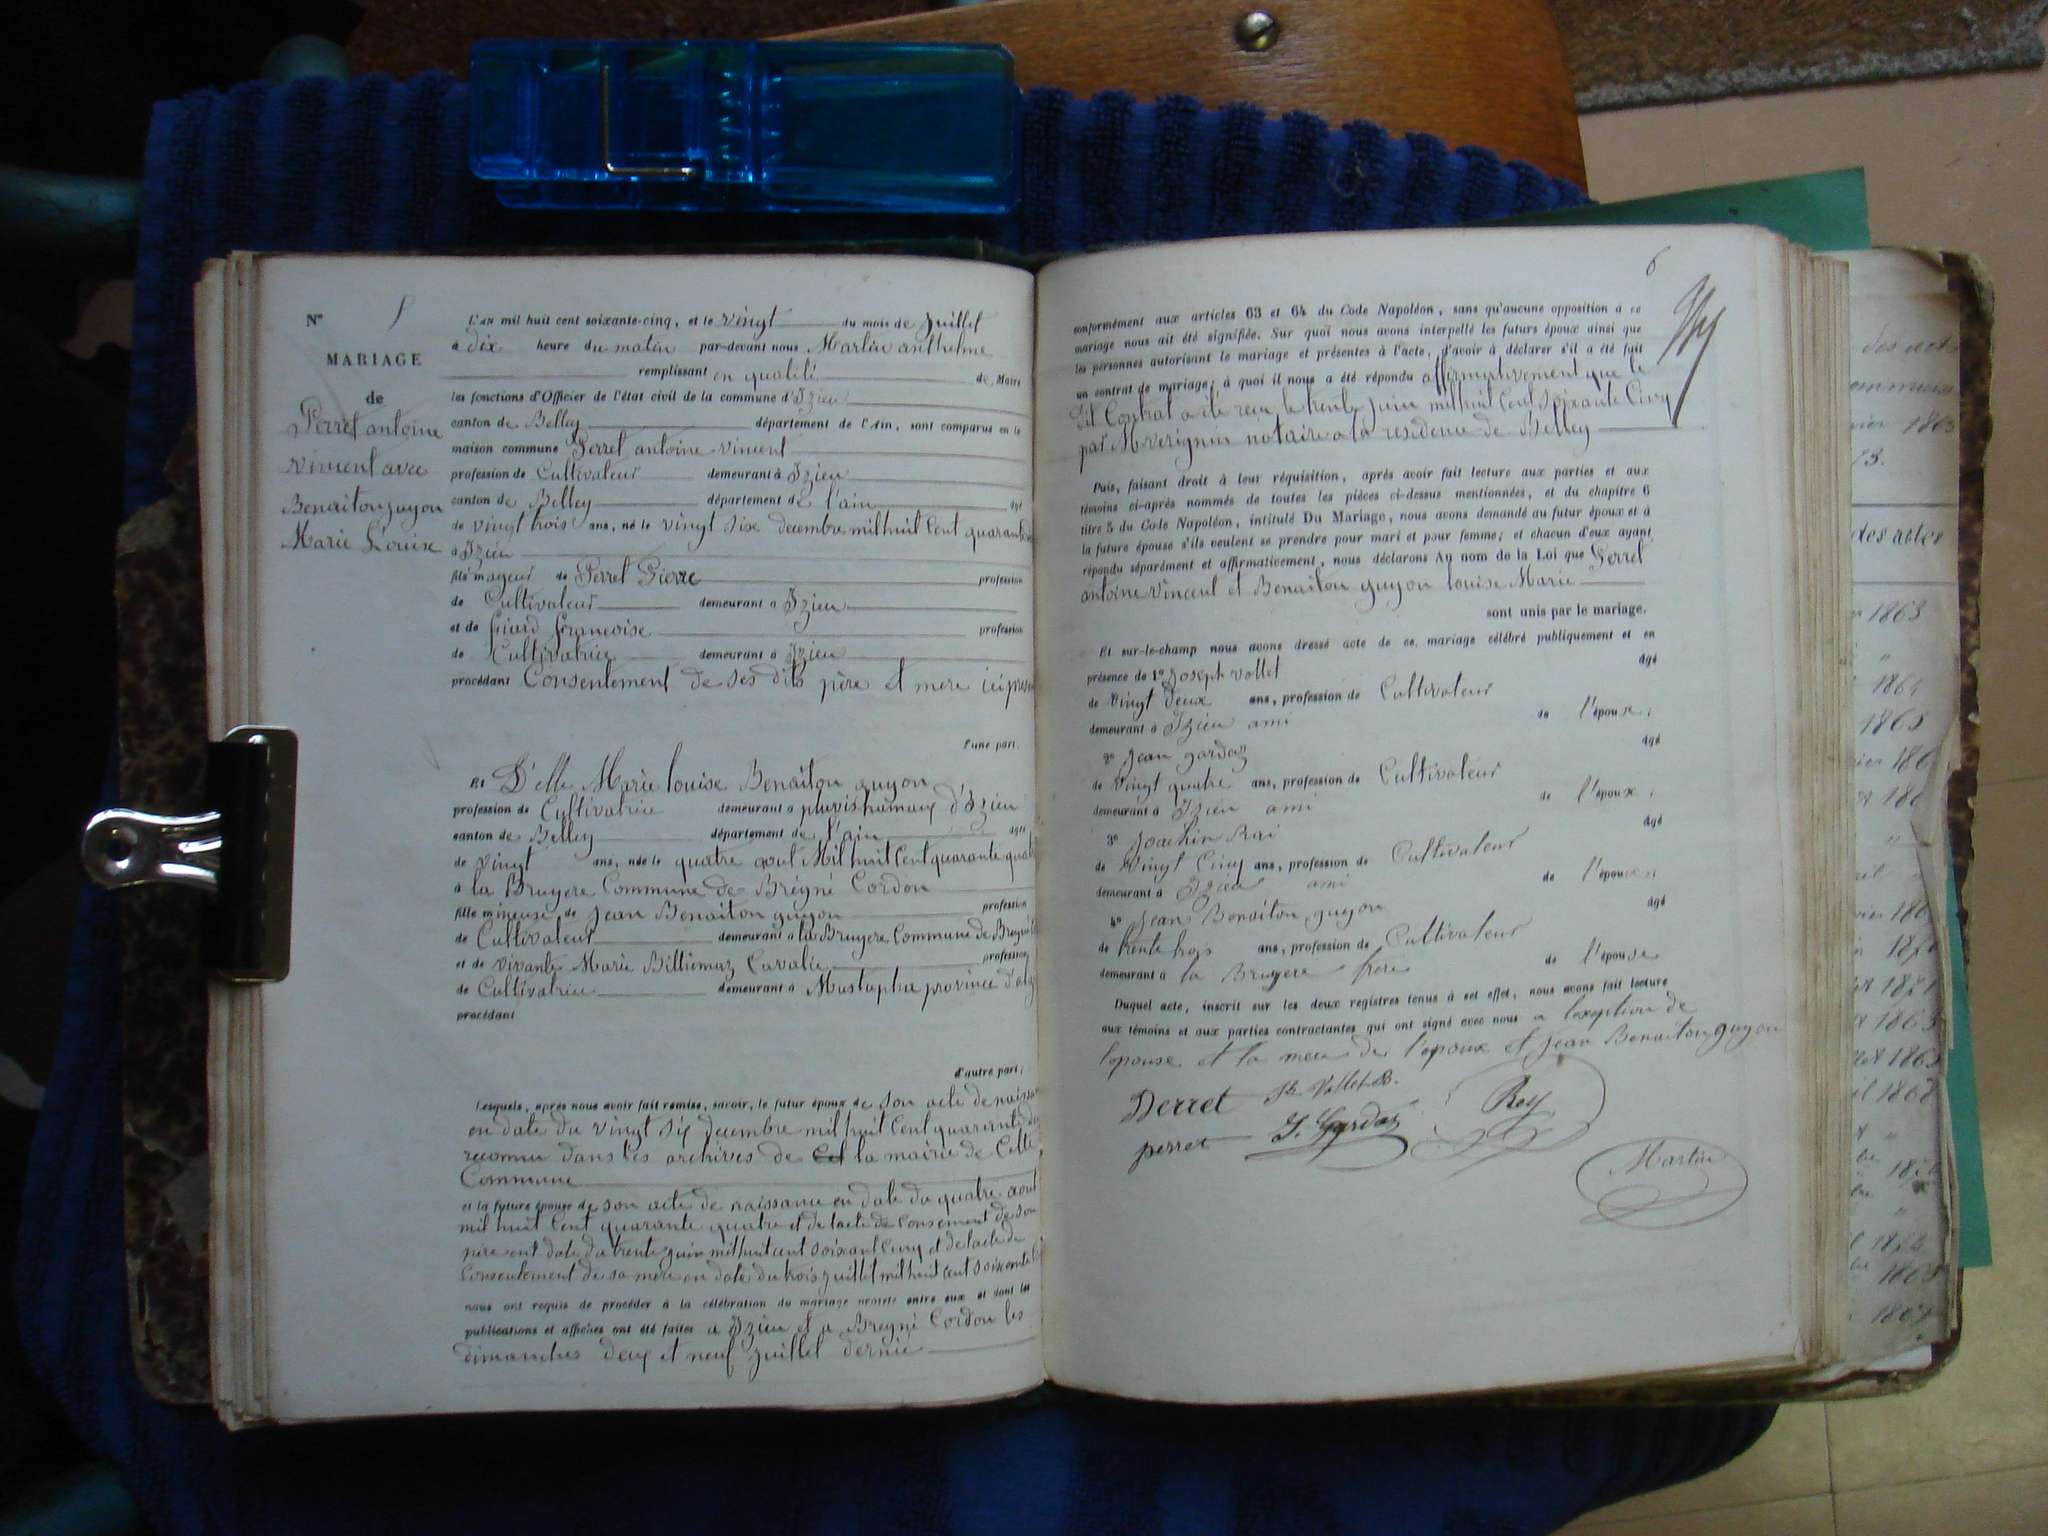 No
MARIAGE
de
Perret antoine
vincent avec
Benaiton guyon
Marie Louise
L'an mil huit cent soixante-cinq, et le vingt du mois de juillet
à dix heure du matin par-devant nous Martin anthelme
remplissant en qualité de Maire
les fonctions d'Officier de l'état civil de la commune d'Izieu
canton de Belley département de l'Ain, sont comparus en la
maison commune Perret antoine vincent
profession de Cultivateur demeurant à Izieu
canton de Belley département de l'ain âgé
de vingt trois ans, né le vingt six decembre mil huit Cent quarante
à Izieu
fils mageur de Perret Pierre profession
de Cultivateur demeurant à Izieu
et de Giard Francoise profession
de Cultivatrice demeurant à Izieu
procédant Consentement de ses dits père et mere ici
d'une part.
Et D'elle Marie louise Benaiton guyon
profession de Cultivatrice demeurant à d'Izieu
canton de Belley département de l'ain âgée
de vingt ans, née le quatre aout Mil huit Cent quarante
à la Bruyere Commune de Brégné Cordon
fille mineuse de Jean Benaiton guyon profession
de Cultivateur demeurant à la Bruyere Commune de
et de vivante Marie Billiemaz Cavalie profession
de Cultivatrice demeurant à Mustapha province
procédant
d'autre part;
Lesquels, après nous avoir fait remise, savoir, le futur époux de son acte de
en date du vingt six decembre mil huit Cent quarante
reconnu dans les archives de la mairie de Cette
Commune
et la future épouse de son acte de naissance en date du quatre aout
mil huit Cent quarante quatre et de lacte de Consement de son
père ent date du trente juin mil huit cent soixant Cinq et de lacte de
Consentement de sa mere en date du trois juillet mil huit Cent soixante
nous ont requis de procéder à la célébration du mariage projeté entre eux et dont les
publications et affiches ont été faites a Izieu et a Bregné Cordon les
dimanches deux et neuf juillet dernie
6
conformément aux articles 63 et 64 du Code Napoléon, sans qu'aucune opposition à ce
mariage nous ait été signifiée. Sur quoi nous avons interpellé les futurs époux ainsi que
les personnes autorisant le mariage et présentes à l'acte, d'avoir à déclarer s'il a été fait
un contrat de mariage; à quoi il nous a été répondu affirmativement que le
dit Contrat a été recu le trente juin mil huit Cent soixante Cinq
par notaire a la residence de Belley
Puis, faisant droit à leur réquisition, après avoir fait lecture aux parties et aux
témoins ci-après nommés de toutes les pièces ci-dessus mentionnées, et du chapitre 6
titre 5 du Code Napoléon, intitulé Du Mariage, nous avons demandé au futur époux et à
la future épouse s'ils veulent se prendre pour mari et pour femme; et chacun d'eux ayant
répondu séparément et affirmativement, nous déclarons Au nom de la Loi que Perret
antoine vincent et Benaiton guyon louise Marie
sont unis par le mariage.
Et sur-le-champ nous avons dressé acte de ce mariage célébré publiquement et en
présence de 1º Joseph vollet âgé
de vingt deux ans, profession de Cultivateur
demeurant à Izieu ami de l'époux;
2º Jean gardaz âgé
de vingt quatre ans, profession de Cultivateur
demeurant à Izieu ami de l'époux;
3º Joachin âgé
de vingt Cinq ans, profession de Cultivateur
demeurant à Izieu ami de l'épouse;
4º Jean Benaiton guyon âgé
de trente trois ans, profession de Cultivateur
demeurant à la Bruyere frere de l'épouse
Duquel acte, inscrit sur les deux registres tenus à cet effet, nous avons fait lecture
aux témoins et aux parties contractantes qui ont signé avec nous a lexeption de
lepouse et la mere de l'epoux et jean Benaiton guyon
Perret Vollet
Rey
perret J. Gardaz
Martin
des actes
1863
1863
des actes
1863
1864
1865
1871
1865
1865
1868
1865
1867